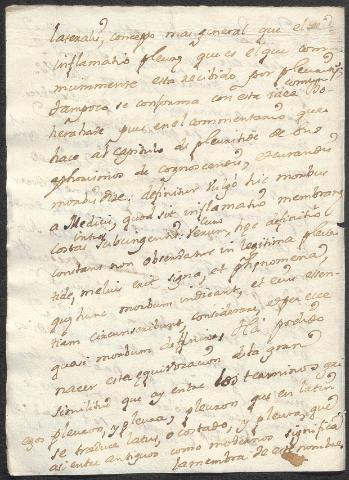 lateralis, concepto mas general que el de
inflamatio pleuræ que es el que com
munmente esta recibido por pleuritis,
tampoco se conforma con esta idea comun Bo
herahave pues en el commentario que
hace al capitulo de pleuritide de sus
aphorismos de cognoscendis, et curandis
morbis dize: definitur vulgo hic morbus
a Medicis, quod sit inflamatio membranæ
costas intus subcingentis. Verum, hæc definitio
constans non observatur in legitima pleuri
tide, melius erit signa, et phenomena,
quæ hunc morbum indicant, et eius essen
tiam circunscribunt, considerare, et per ecce
quasi morbum definire. Ha podido
nacer esta equivocacion de la gran
similitud que ay entre los terminos gri
egos pleuron, y pleura, pleuron que en latin
se traduce latus, o costado, y pleura, que
asi entre antiguos como modernos significa
la membrana de este nombre,